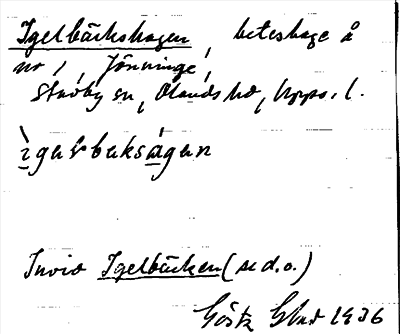 Igelbäckshagen, beteshage å
nr 1, Jönninge,
Stavby sn, Olands hd, Upps. l.
ìgarbakságen
Invid Igelbäcken (se d.o.)
Gösta 1936